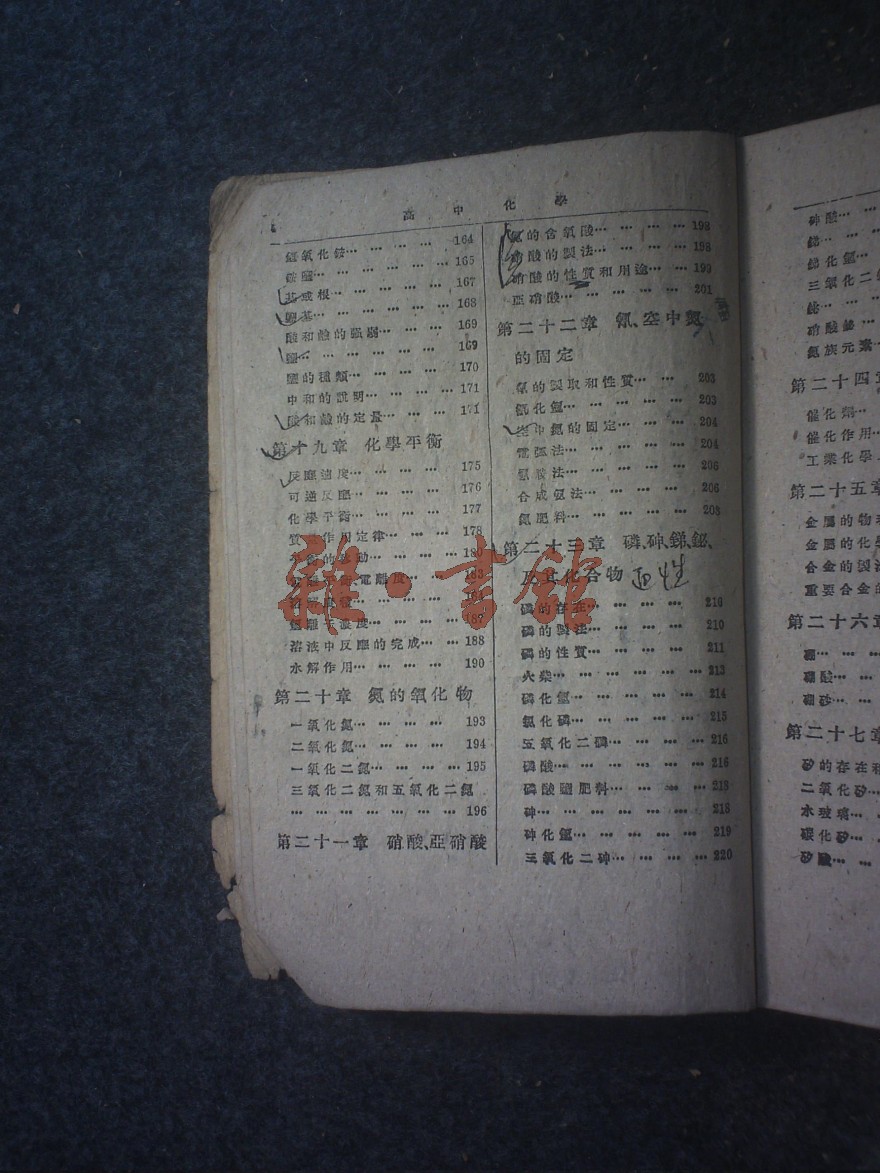 高中化學
氫氧化銨… … … … … 164
銨鹽… … … … … … 165
基或根… … … … … 167
鹽基… … … … … … 168
酸和鹼的強弱… … … … 169
鹽… … … … … … 169
鹽的種類… … … … … 170
中和的說明… … … … … 171
酸和鹼的定量… … … … 171
第十九章 化學平衡
反應速度… … … … … 175
可逆反應… … … … … 176
化學平衡… … … … … 177
作用定律… … … … 178
187
溶液中反應的完成… … … 188
水解作用… … … … … 190
第二十章 氮的氧化物
一氧化氮… … … … 193
二氧化氮… … … … 194
一氧化二氮… … … … 195
三氧化二氮和五氧化二氮
… … … … … … … 196
第二十一章 硝酸、亞硝酸
氮的含氧酸… … … … … 198
硝酸的製法… … … … … 198
硝酸的性質和用途… … … 199
亞硝酸… … … … … … 201
第二十二章 氰、空中氮
的固定
氰的製取和性質… … … 203
氰化氫… … … … … 203
空中氮的固定… … … … 204
電弧法… … … … … 204
… … … … … 206
合成氨法… … … … … 206
氮肥料… … … … …
第二十三章 磷、砷、銻、鉍、
及其化合物
磷的存在… … … … … 210
磷的製法… … … … … 210
磷的性質… … … … … 211
火柴… … … … … … 213
磷化氫… … … … … 214
氯化磷… … … … … 215
五氧化二磷… … … … … 216
磷酸… … … … … … 216
磷酸鹽肥料… … … … 218
砷… … … … … … 218
砷化氫… … … … … 219
三氧化二砷… … … … … 220
雜·書館
砷酸… …
銻… … …
銻化氫…
三氧化二
鉍… … …
硝酸鉍…
氮族元素
第二十四章
催化劑…
催化作用
工業化學
第二十五章
金屬的物
金屬的化
合金的製
重要合金的
第二十六章
硼… … …
硼酸… …
硼砂… …
第二十七章
矽的存在和
二氧化矽
水玻璃…
碳化矽…
矽酸… …